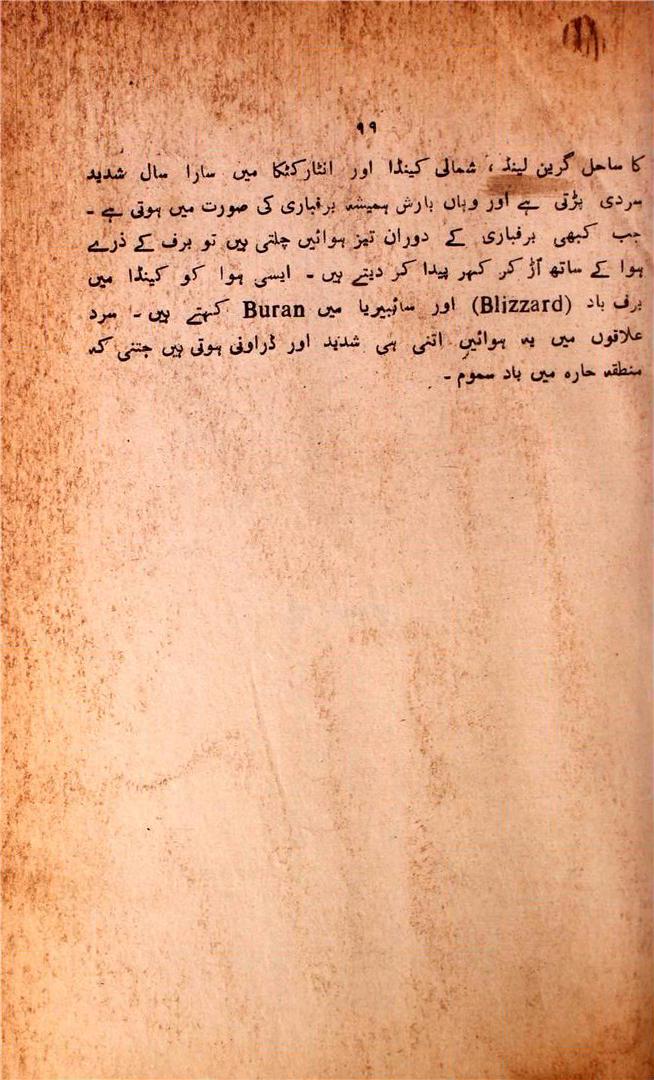 ۹۹
کا ساحل گرین لینڈ ، شمالی کینڈا اور انٹارکٹکا میں سارا سال شدید
سردی پڑتی ہے اور وہاں بارش ہمیشہ برفباری کی صورت میں ہوتی ہے ۔
جب کبھی برفباری کے دوران تیز ہوائیں چلتی ہیں تو برف کے ذرے
ہوا کے ساتھ اُڑ کر کہر پیدا کر دیتے ہیں ۔ ایسی ہوا کو کینڈا میں
برف باد (Blizzard) اور سائبیریا میں Buran کہتے ہیں ۔ سرد
علاقوں میں یہ ہوائیں اتنی ہی شدید اور ڈراونی ہوتی ہیں جتنی کہ
منطقہ حارہ میں باد سموم ۔